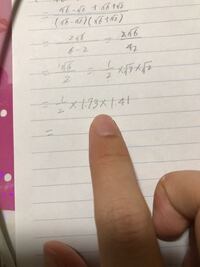 √6 - √2 + √6 + √2
(√6 - √2)(√6 + √2)
= 2√6 / 6 - 2 = 2√6 / 4 2
= √6 / 2 = 1 / 2 × √3 × √2
= 1 / 2 × 1.73 × 1.41
=